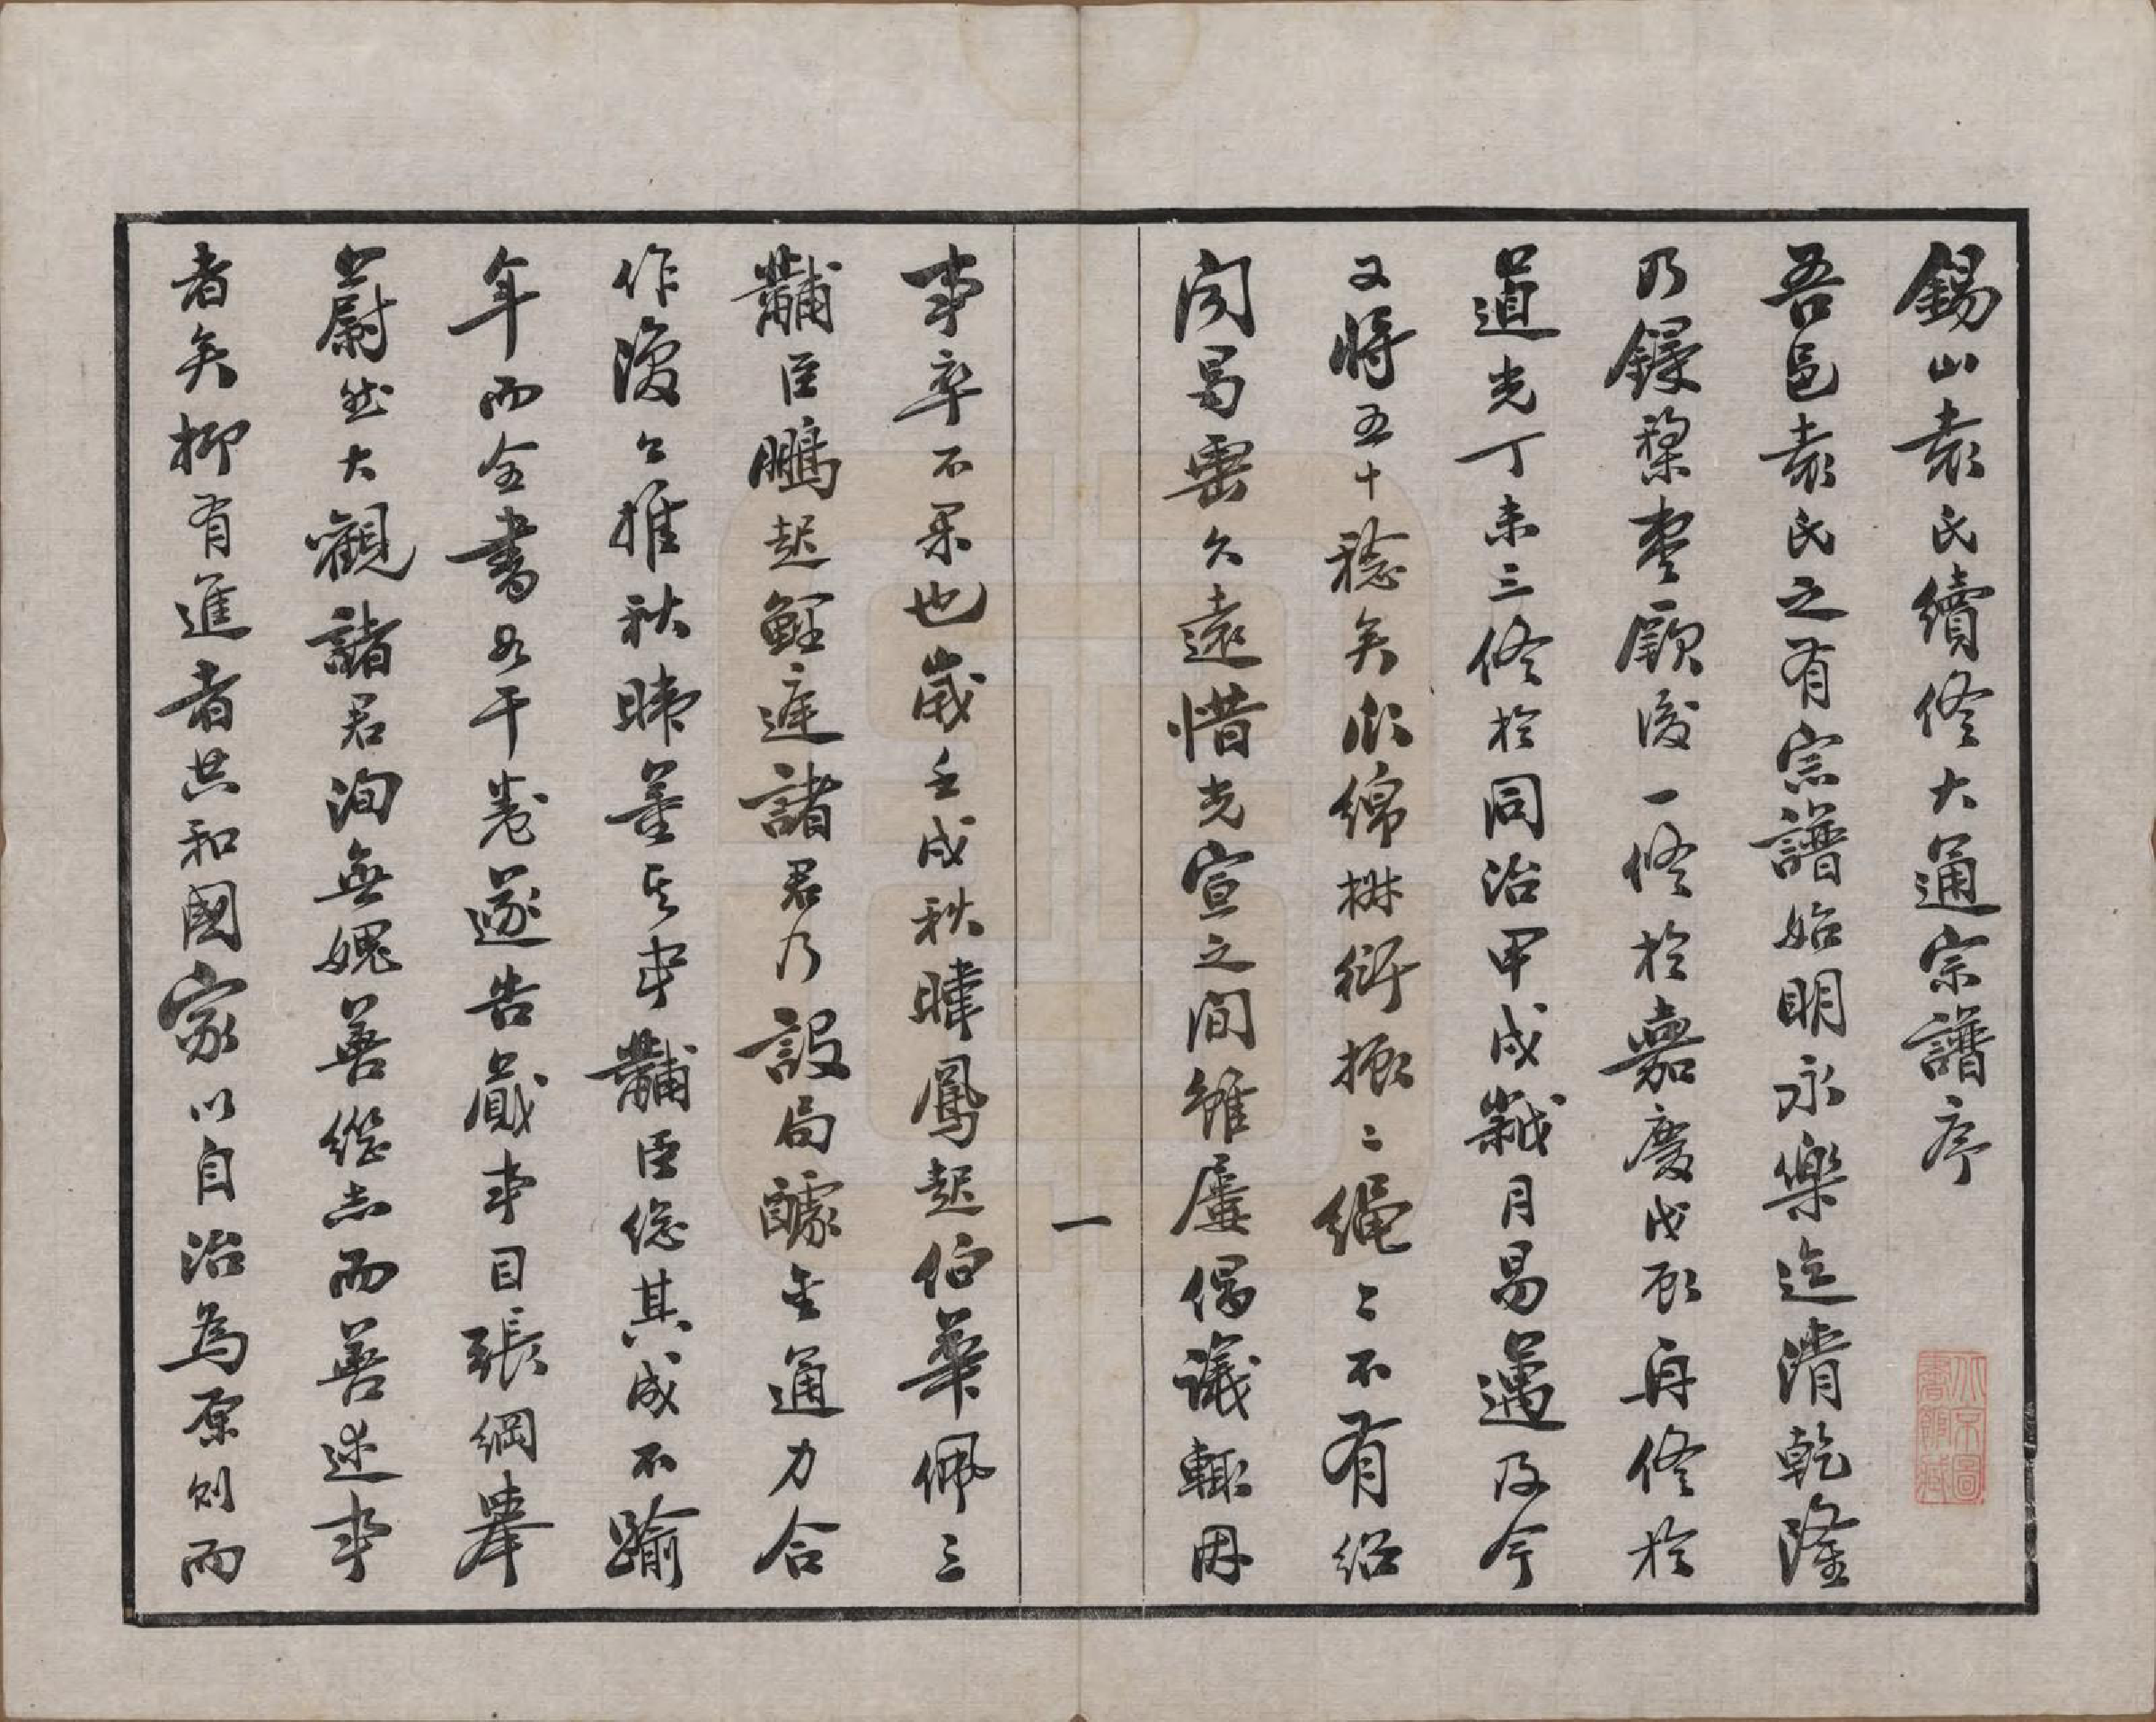 錫山袁氏續修大通宗譜序
吾邑袁氏之有宗譜始明永樂迄清乾隆
乃鋟棃棗厥後一修於嘉慶戊辰再修於
道光丁未三修於同治甲戌歲月曷邁及今
又將五十稔矣瓜綿椒衍振振繩繩不有紹
聞曷垂久遠惜光宣之間雖屢倡議輒因
一
事卒不果也歲壬戌秋暐鳳起伯華佩三
黼臣鵬起鯉庭諸君乃設局醵金通力合
作復公推秋暐董其事黼臣總其成不踰
年而全書如干卷遂告蕆事目張綱舉
蔚然大觀諸君洵無媿善繼志而善述事
者矣抑有進者共和國家以自治為原則而